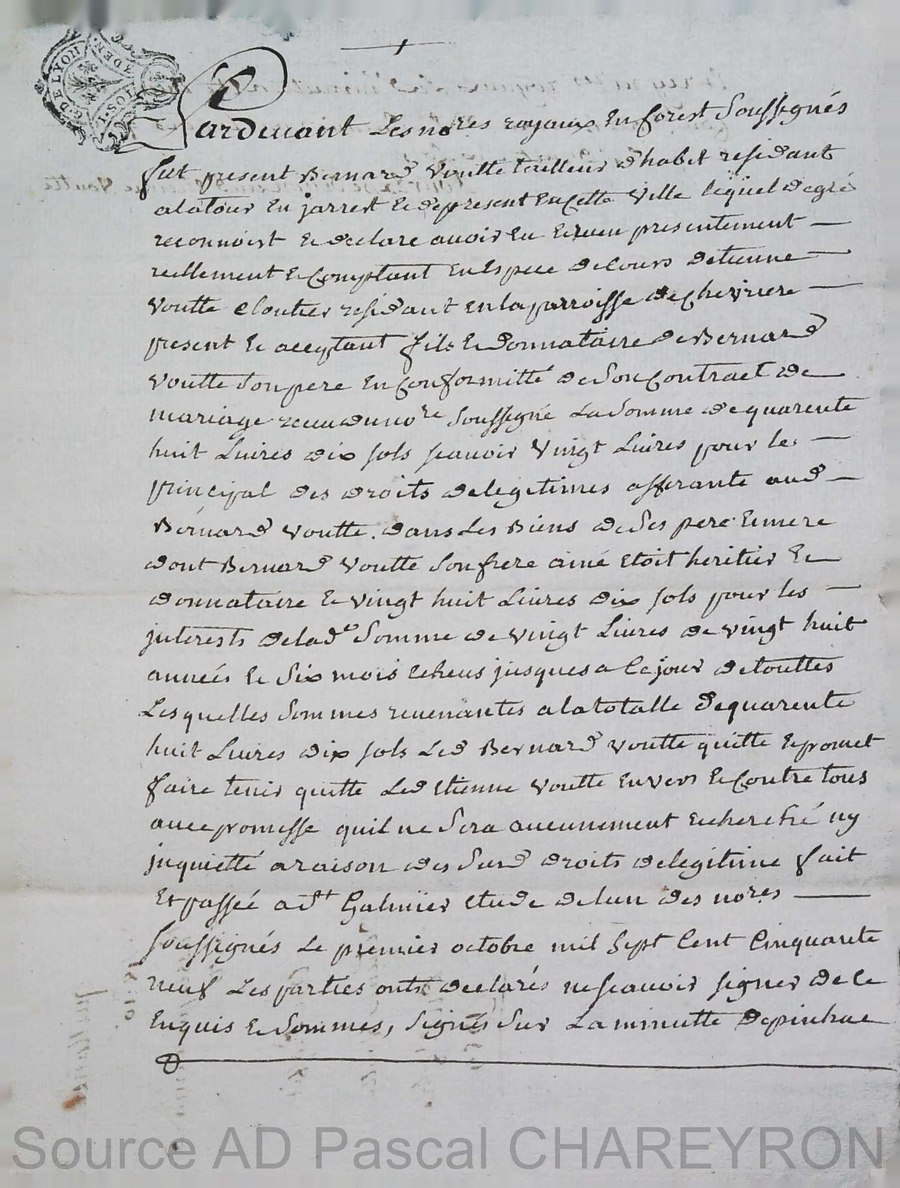 Pardevant Les no.res royaux En forest Soussignés
fut present Bernard voutte tailleur d'habit residant
a la tour En jarrest & de present En cette ville lequel de gré
reconnoist & declare avoir Eu & receu presentement
reellement & comptant En Espece de cours d'etienne
voutte cloutier residant en la parroisse de chevriere
present & acceptant fils & donnataire de Bernard
voutte son pere En conformitté de son contract de
mariage receu du no.re soussigné La somme de quarente
huit Livres dix sols scavoir vingt Livres pour le
principal des droits de legitimes afferante aud
Bernard voutte dans Les Biens de Ses pere & mere
dont Bernard voutte son frere ainé Etoit heritier &
donnataire & vingt huit Livres dix sols pour les
interests de lad.e somme de vingt Livres de vingt huit
année & six mois Echeus jusques a Ce jour de touttes
Les quelles sommes revenantes a la totalle de quarente
huit Livres dix sols Led Bernard voutte quitte & promet
faire tenir quitte Led Etienne voutte Envers & contre tous
avec promesse quil ne sera aucunement recherché ny
inquietté a raison des Susd droits de legitime fait
Et passée a St Galmier Etude de lun des no.res
soussignés Le premier octobre mil sept Cent Cinquante
neuf Les parties onts declarés ne scavoir signer de ce
Enquis & sommés, signés sur La minutte Depinhac
DE LYON
Source AD Pascal CHAREYRON